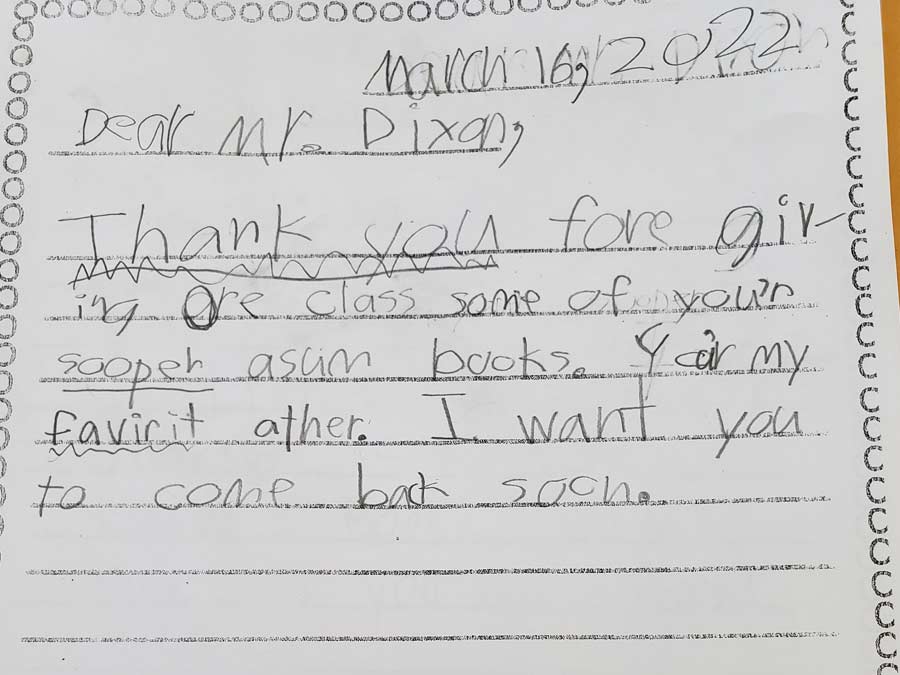 March 16, 2022
Dear Mr. Dixon,
Thank you fore giv-
ing Ore class some of your
sooper asum books. Your my
favirit ather. I want you
to come back soon.